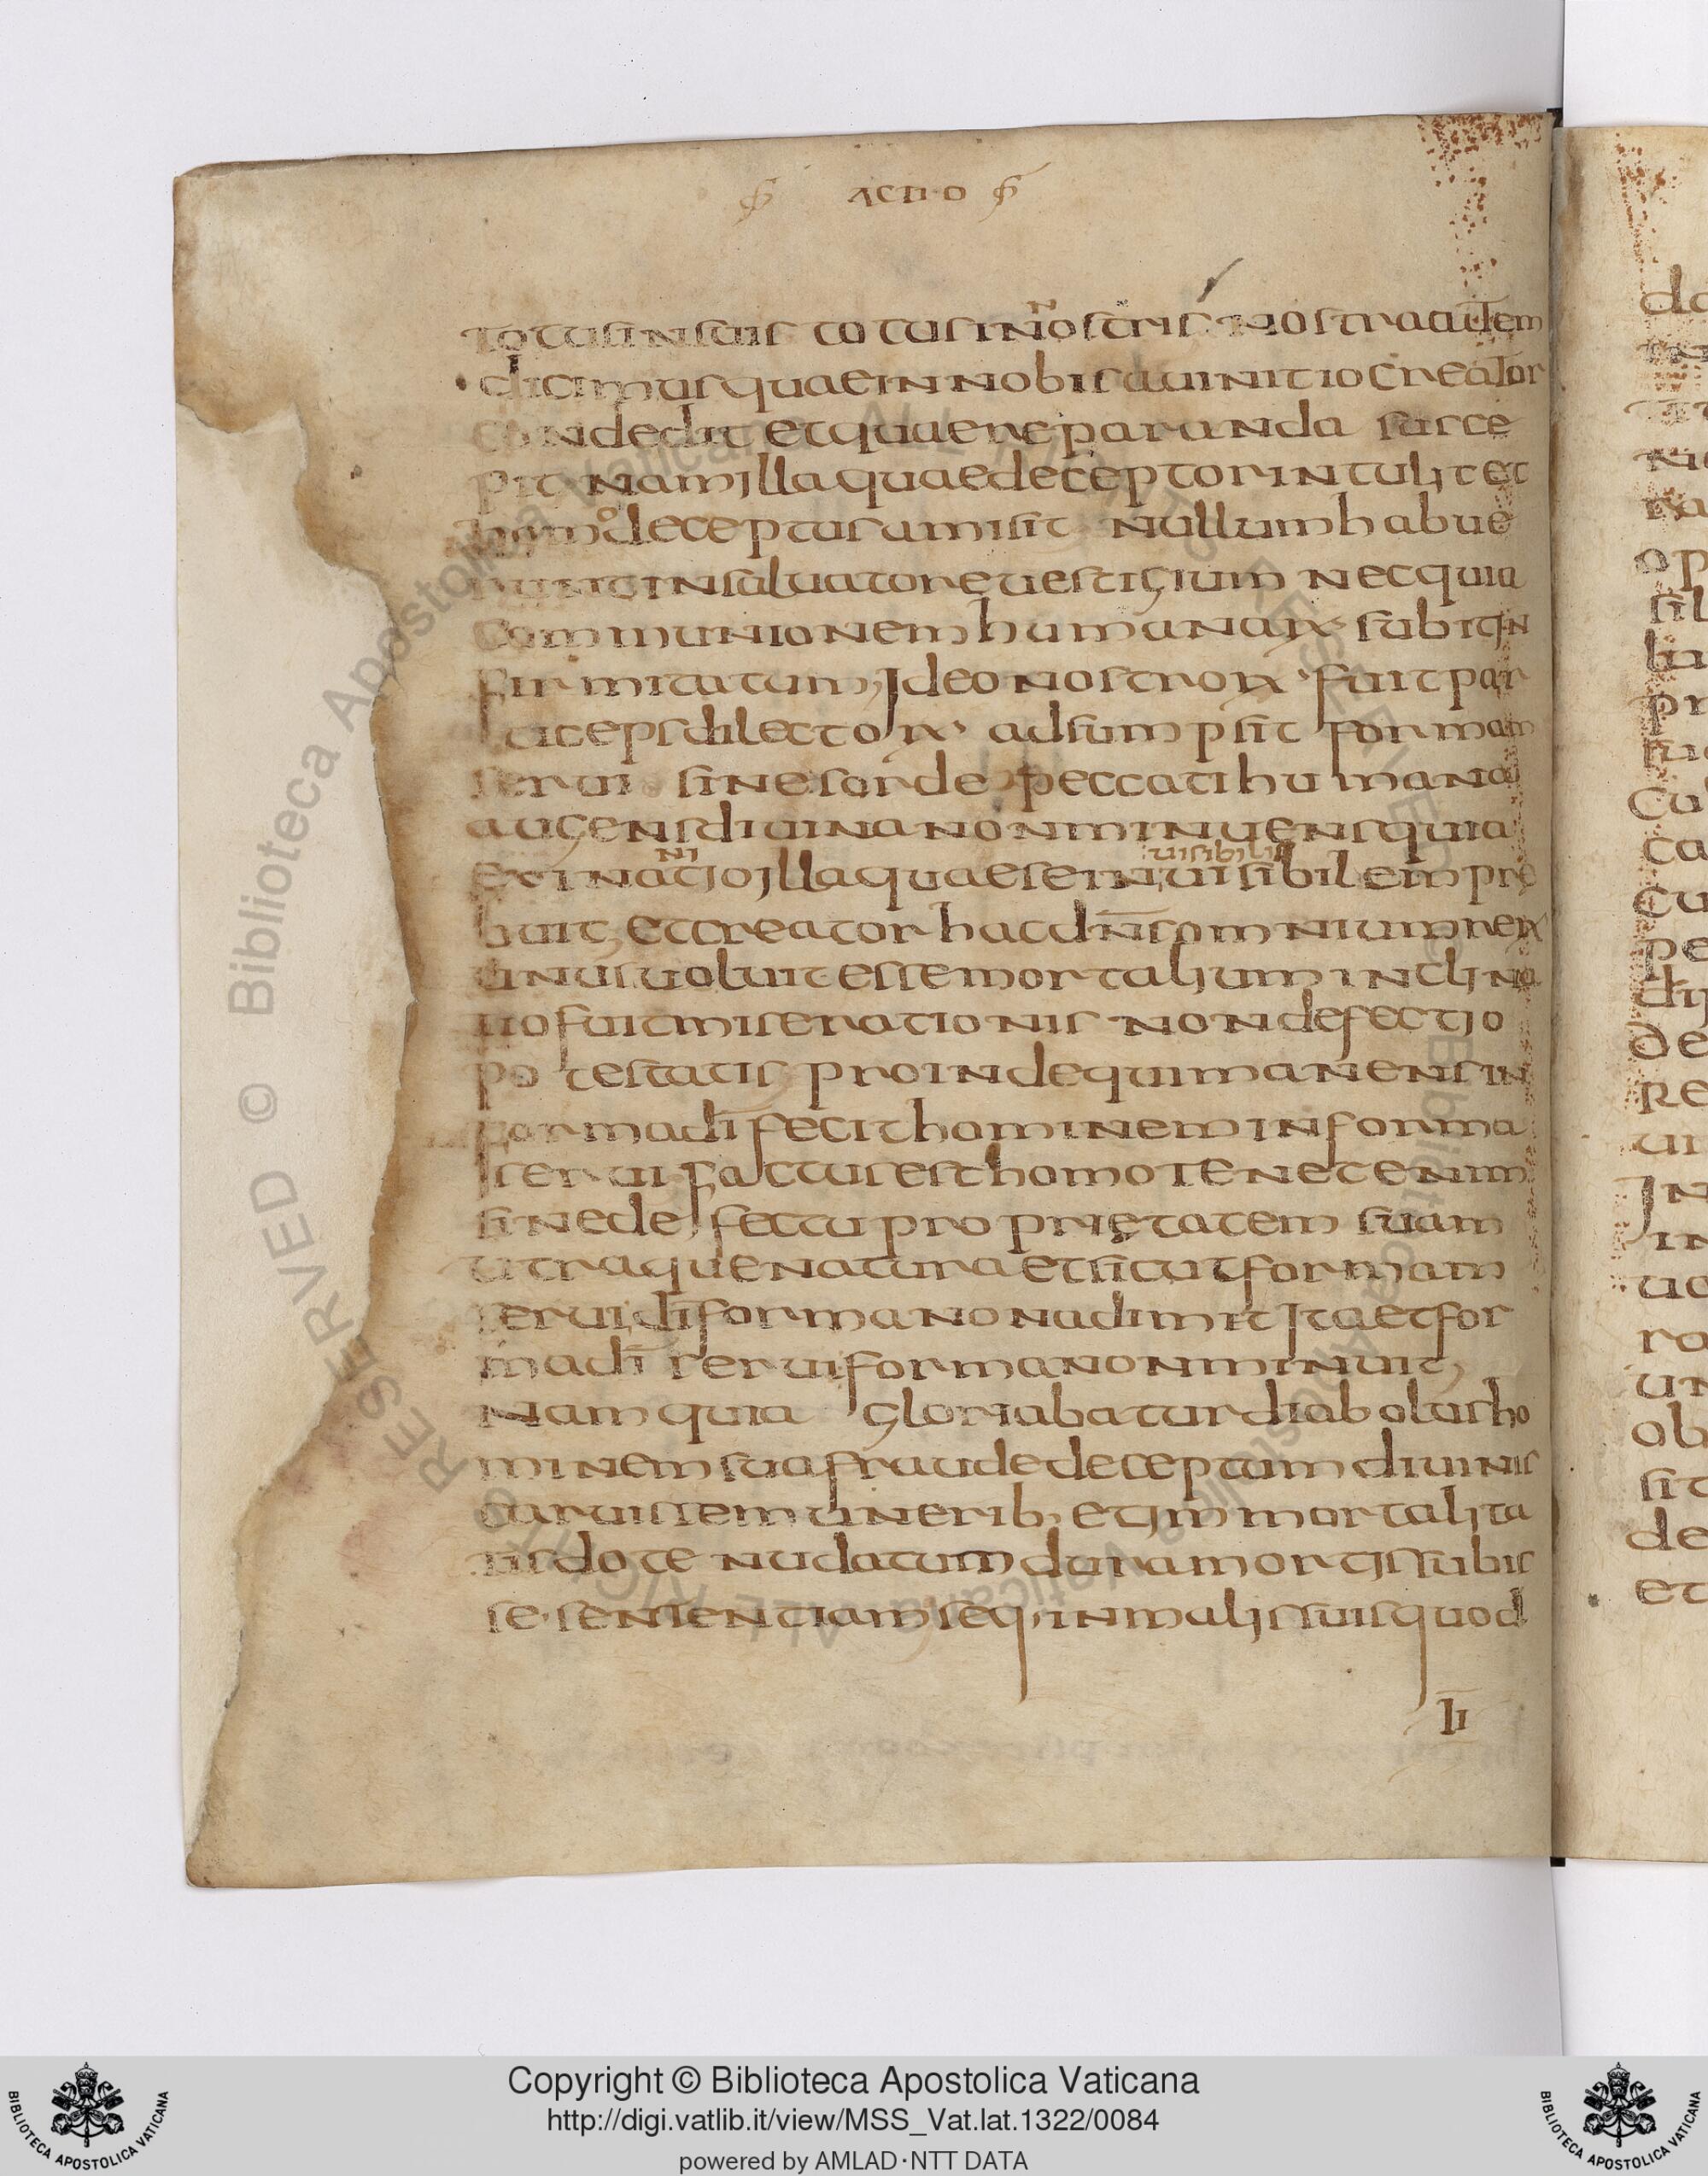 ACTIO
totus in suis totus in nostris nostra autem
dicimus quae in nobis ab initio creator
condedit et quae reparanda susce
pit nam illa quae deceptor intulit et
homo deceptus amisit nullum habue
runt in salvatore vestigium nec quia
communionem humanarum subiit in
firmitatum ideo nostrorum fuit par
ticeps dilectorum adsumpsit formam
servi sine sorde peccati humana
augens divina non minuens quia
exinanitio illa quae se invisibilem pre
huit et creator hac dns omnium rerum
unus voluit esse mortalium inclina
tio fuit miserationis non defectio
potestatis proinde qui manens in
forma di fecit hominem in forma
servi factus est homo tenet enim
sine defectu proprietatem suam
utraque natura et sicut formam
servi di forma non adimit ita et for
ma di servi forma non minuit
nam quia gloriabatur diabolus ho
minem sua fraude deceptum divinis
caruisse munerib. et inmortalita
tis dote nudatum duram mortis subis
se sententiam seq. in malis suis quod
II
Copyright © Biblioteca Apostolica Vaticana
http://digi.vatlib.it/view/MSS_Vat.lat.1322/0084
powered by AMLAD·NTT DATA
BIBLIOTECA APOSTOLICA VATICANA
BIBLIOTECA APOSTOLICA VATICANA